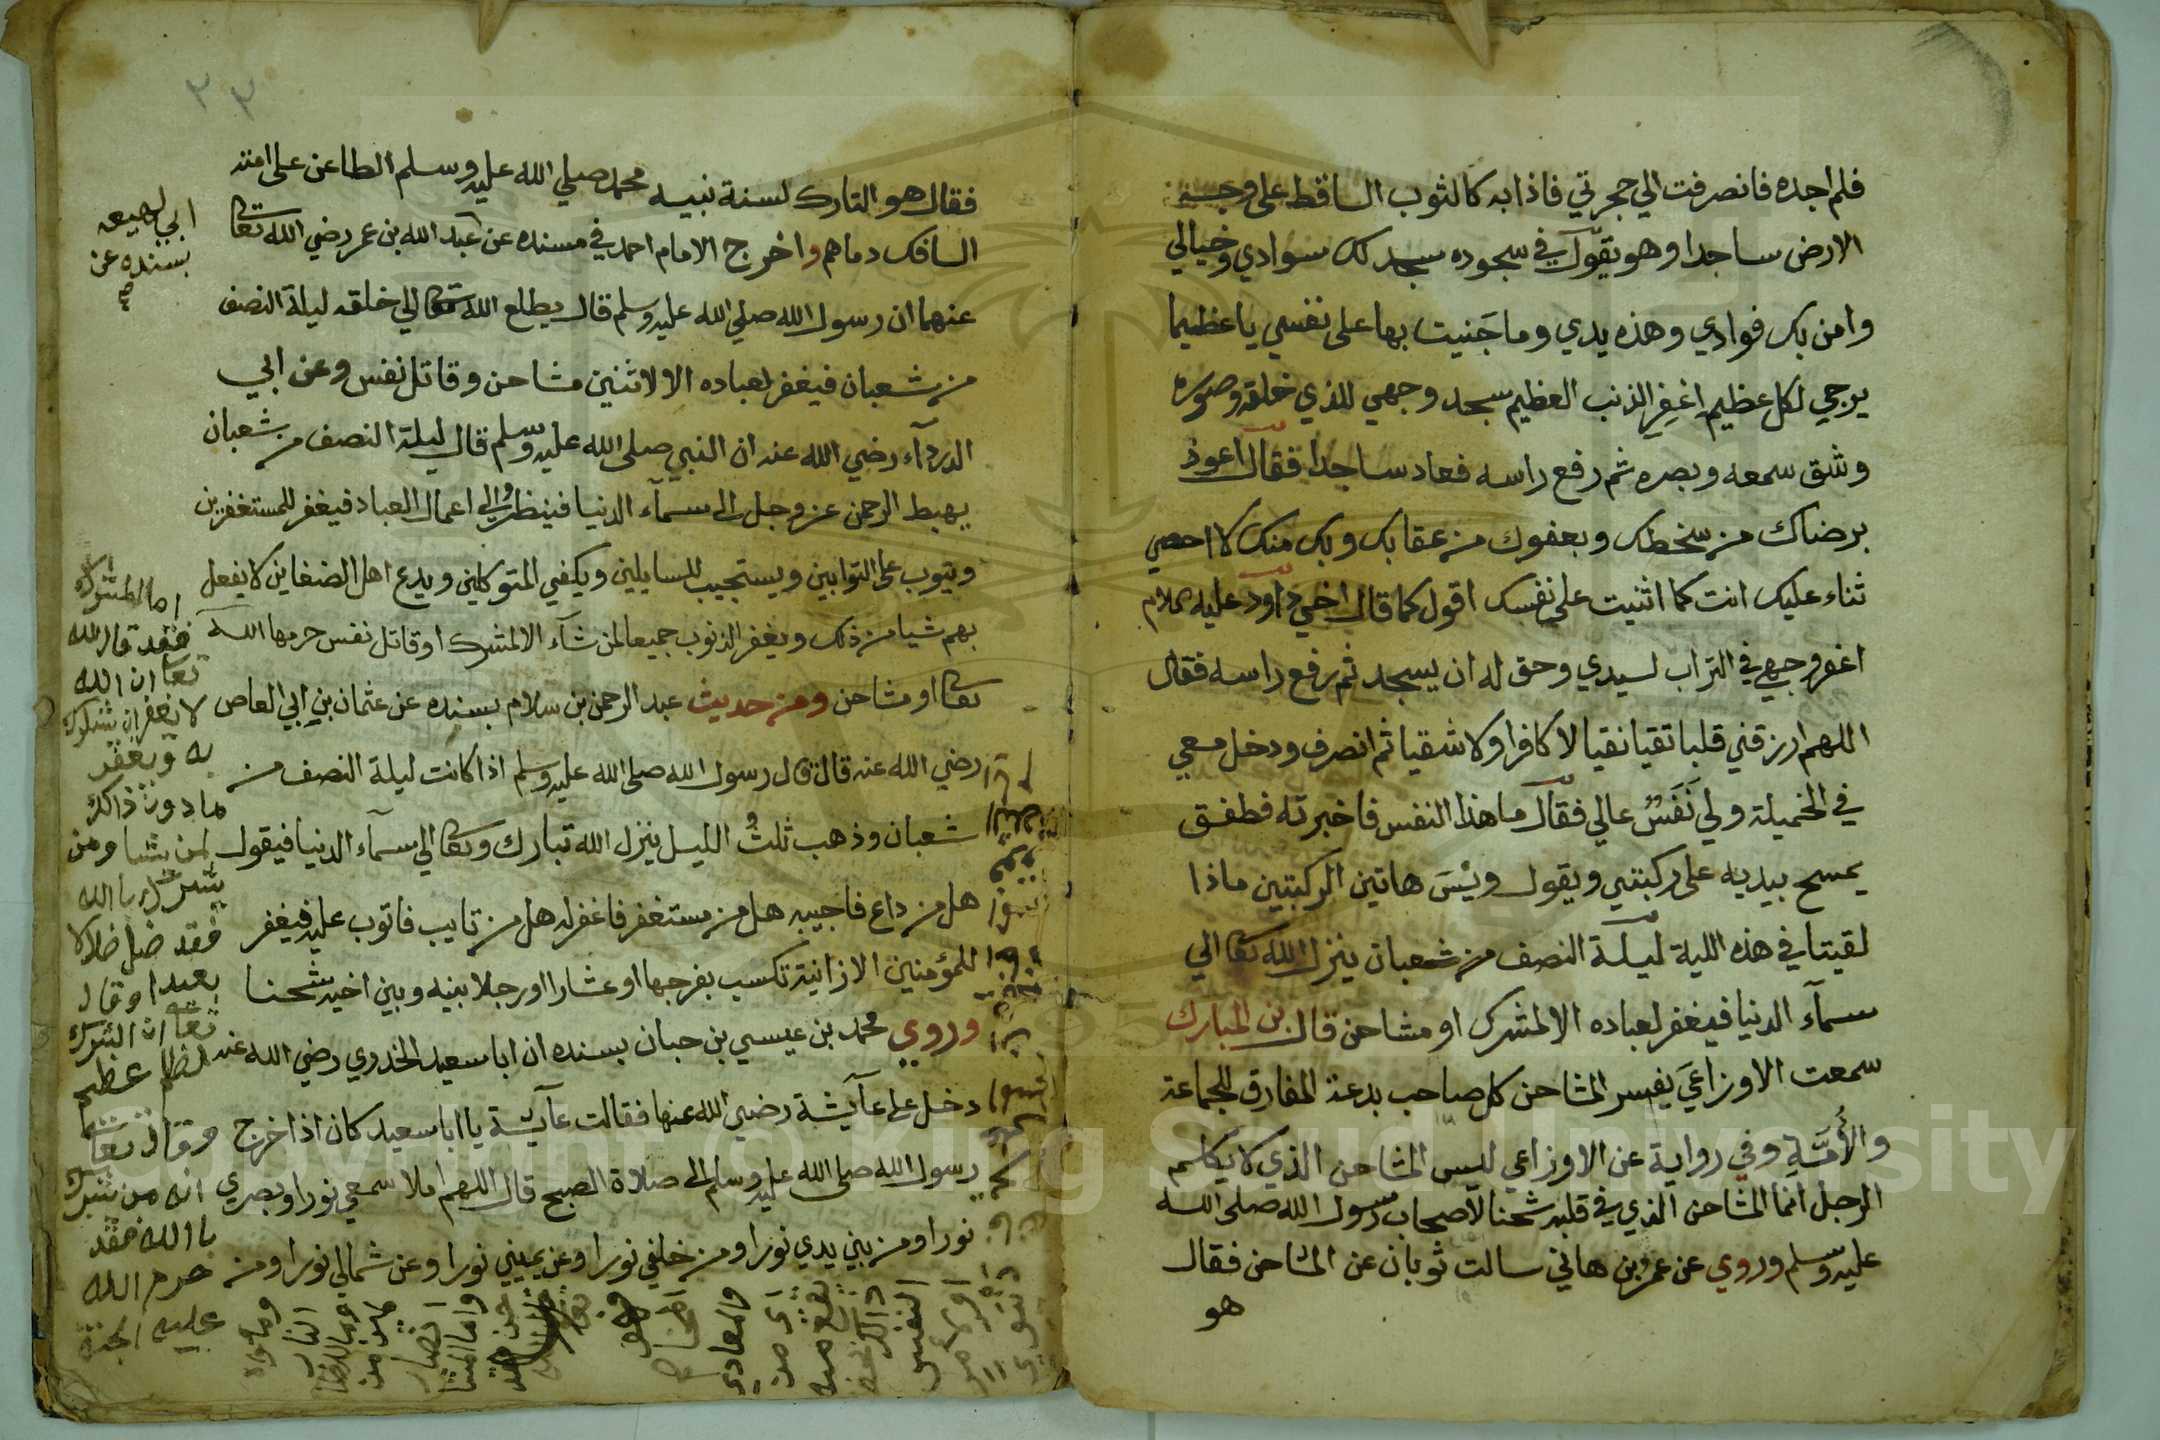 فلم اجده فانصرفت الي حجرتي فاذا به كالثوب الساقط على وجه
الارض ساجدا وهو يقول في سجوده سجد لك سوادي وخيالي
وامن بك فوادي وهذه يدي وما جَنيت بها على نفسي يا عظيما
يرجي لكل عظيم اغفِر الذنب العظيم سجد وجهي للذي خلقه وصوره
وشق سمعه وبصره ثم رفع راسه فعاد ساجدا فقال اعوذ
برضاك من سخطك وبعفوك من عقابك وبك منك لا احصي
ثناء عليك انت كما اثنيت على نفسك اقول كما قال اخي داود عليه سلام
اغفر وجهي في التراب لسيدي وحق له ان يسجد ثم رفع راسه فقال
اللهم ارزقني قلبا تقيا نقيا لا كافرا ولا شقيا ثم انصرف ودخل معي
في الخميلة ولي نَفَسٌ عالي فقال ما هذا النفس فاخبرته فطفق
يمسح بيديه على ركبتي ويقول ويْسَ هاتين الركبتين ماذا
لقيتا في هذه اللية ليلة النصف من شعبان ينزل الله تعالى الي
سمآء الدنيا فيغفر لعباده الا لمشرك او مشاحن قال بن المبارك
سمعت الاوزاعيَ يفسر المشاحن كل صاحب بدعة المفارق للجماعة
والأُمَّةِ وفي رواية عن الاوزاعي ليس المشاحن الذي لا يكلم
الرجل انما المشاحن الذي في قلبه شحنا لآصحاب رسول الله صلى الله
عليه وسلم وروي عن عمر بن هاني سالت ثوبان عن المشاحن فقال
هو
٣٣
فقال هو التارك لسنة نبيه محمد صلي الله عليه وسلم الطاعن على امته
السافك دماهم واخرج الامام احمد في مسنده عن عبد الله بن عمر رضي الله تعا
عنهما ان رسول الله صلي الله عليه وسلم قال يطلع الله تعالي الي خلقه ليلة النصف
من شعبان فيغفر لعباده الا لاثنين مشاحن وقاتل نفس وعن ابي
الدردآء رضي الله عنه ان النبي صلى الله عليه وسلم قال ليلة النصف من شعبان
يهبط الرحمن عز وجل الى سمآء الدنيا فينظر الي اعمال العباد فيغفر للمستغفرين
ويتوب على التوابين ويستجيب للسايلين ويكفي المتوكلين ويدع اهل الضغاين لا يفعل
بهم شيا من ذلك ويغفر الذنوب جميعا لمن شآء الا لمشرك او قاتل نفس حرمها الله
تعا او مشاحن ومن حديث عبد الرحمن بن سلام بسنده عن عثمان بن ابي العاص
رضي الله عنه قال قال رسول الله صلى الله عليه وسلم اذا كانت ليلة النصف من
شعبان وذهب ثلثُ الليل ينزل الله تبارك وتعا الي سمآء الدنيا فيقول
هل من داع فاجيبه هل من مستغفر فاغفر له هل من تايب فاتوب عليه فيغفر
للمؤمنين الا زانية تكسب بفرجها او عشارا او رجلا بينه وبين اخيه شحنا
وروي محمد بن عيسي بن حبان بسنده ان ابا سعيد الخدري رضي الله عنه
دخل على عآيشة رضي الله عنها فقالت عآيشة يا ابا سعيد كان اذا خرج
رسول الله صلى الله عليه وسلم الى صلاة الصبح قال اللهم املا سمعي نورا وبصري
نورا ومن بين يدي نورا ومن خلفي نورا وعن يميني نورا وعن شمالي نورا ومن
ابي لهيعه
بسنده عن
اما المشرك
فقد قال الله
تعا ان الله
لا يغفر ان يشرك
به ويغفر
ما دون ذالك
لمن يشا ومن
يشرك با الله
فقد ضل ضلالا
بعيدا وقال
تعا ان الشرك
لظلم عظيم
وقال تعا
انه من يشرك
با الله فقد
حرم الله
عليه الجنة
Copyright © King Saud University